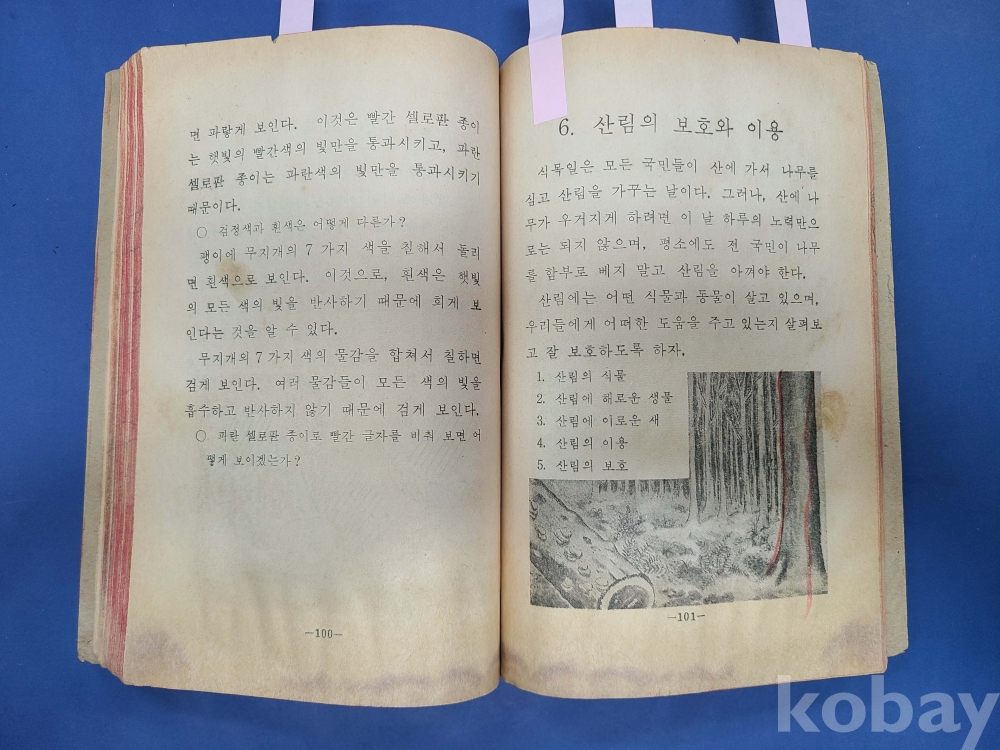 면 파랗게 보인다. 이것은 빨간 셀로판 종이
는 햇빛의 빨간색의 빛만을 통과시키고, 파란
셀로판 종이는 파란색의 빛만을 통과시키기
때문이다.
○ 검정색과 흰색은 어떻게 다른가?
팽이에 무지개의 7 가지 색을 칠해서 돌리
면 흰색으로 보인다. 이것으로, 흰색은 햇빛
의 모든 색의 빛을 반사하기 때문에 희게 보
인다는 것을 알 수 있다.
무지개의 7 가지 색의 물감을 합쳐서 칠하면
검게 보인다. 여러 물감들이 모든 색의 빛을
흡수하고 반사하지 않기 때문에 검게 보인다.
○ 파란 셀로판 종이로 빨간 글자를 비춰 보면 어
떻게 보이겠는가?
—100—
6. 산림의 보호와 이용
식목일은 모든 국민들이 산에 가서 나무를
심고 산림을 가꾸는 날이다. 그러나, 산에 나
무가 우거지게 하려면 이 날 하루의 노력만으
로는 되지 않으며, 평소에도 전 국민이 나무
를 함부로 베지 말고 산림을 아껴야 한다.
산림에는 어떤 식물과 동물이 살고 있으며,
우리들에게 어떠한 도움을 주고 있는지 살펴보
고 잘 보호하도록 하자.
1. 산림의 식물
2. 산림에 해로운 생물
3. 산림에 이로운 새
4. 산림의 이용
5. 산림의 보호
—101—
kobay